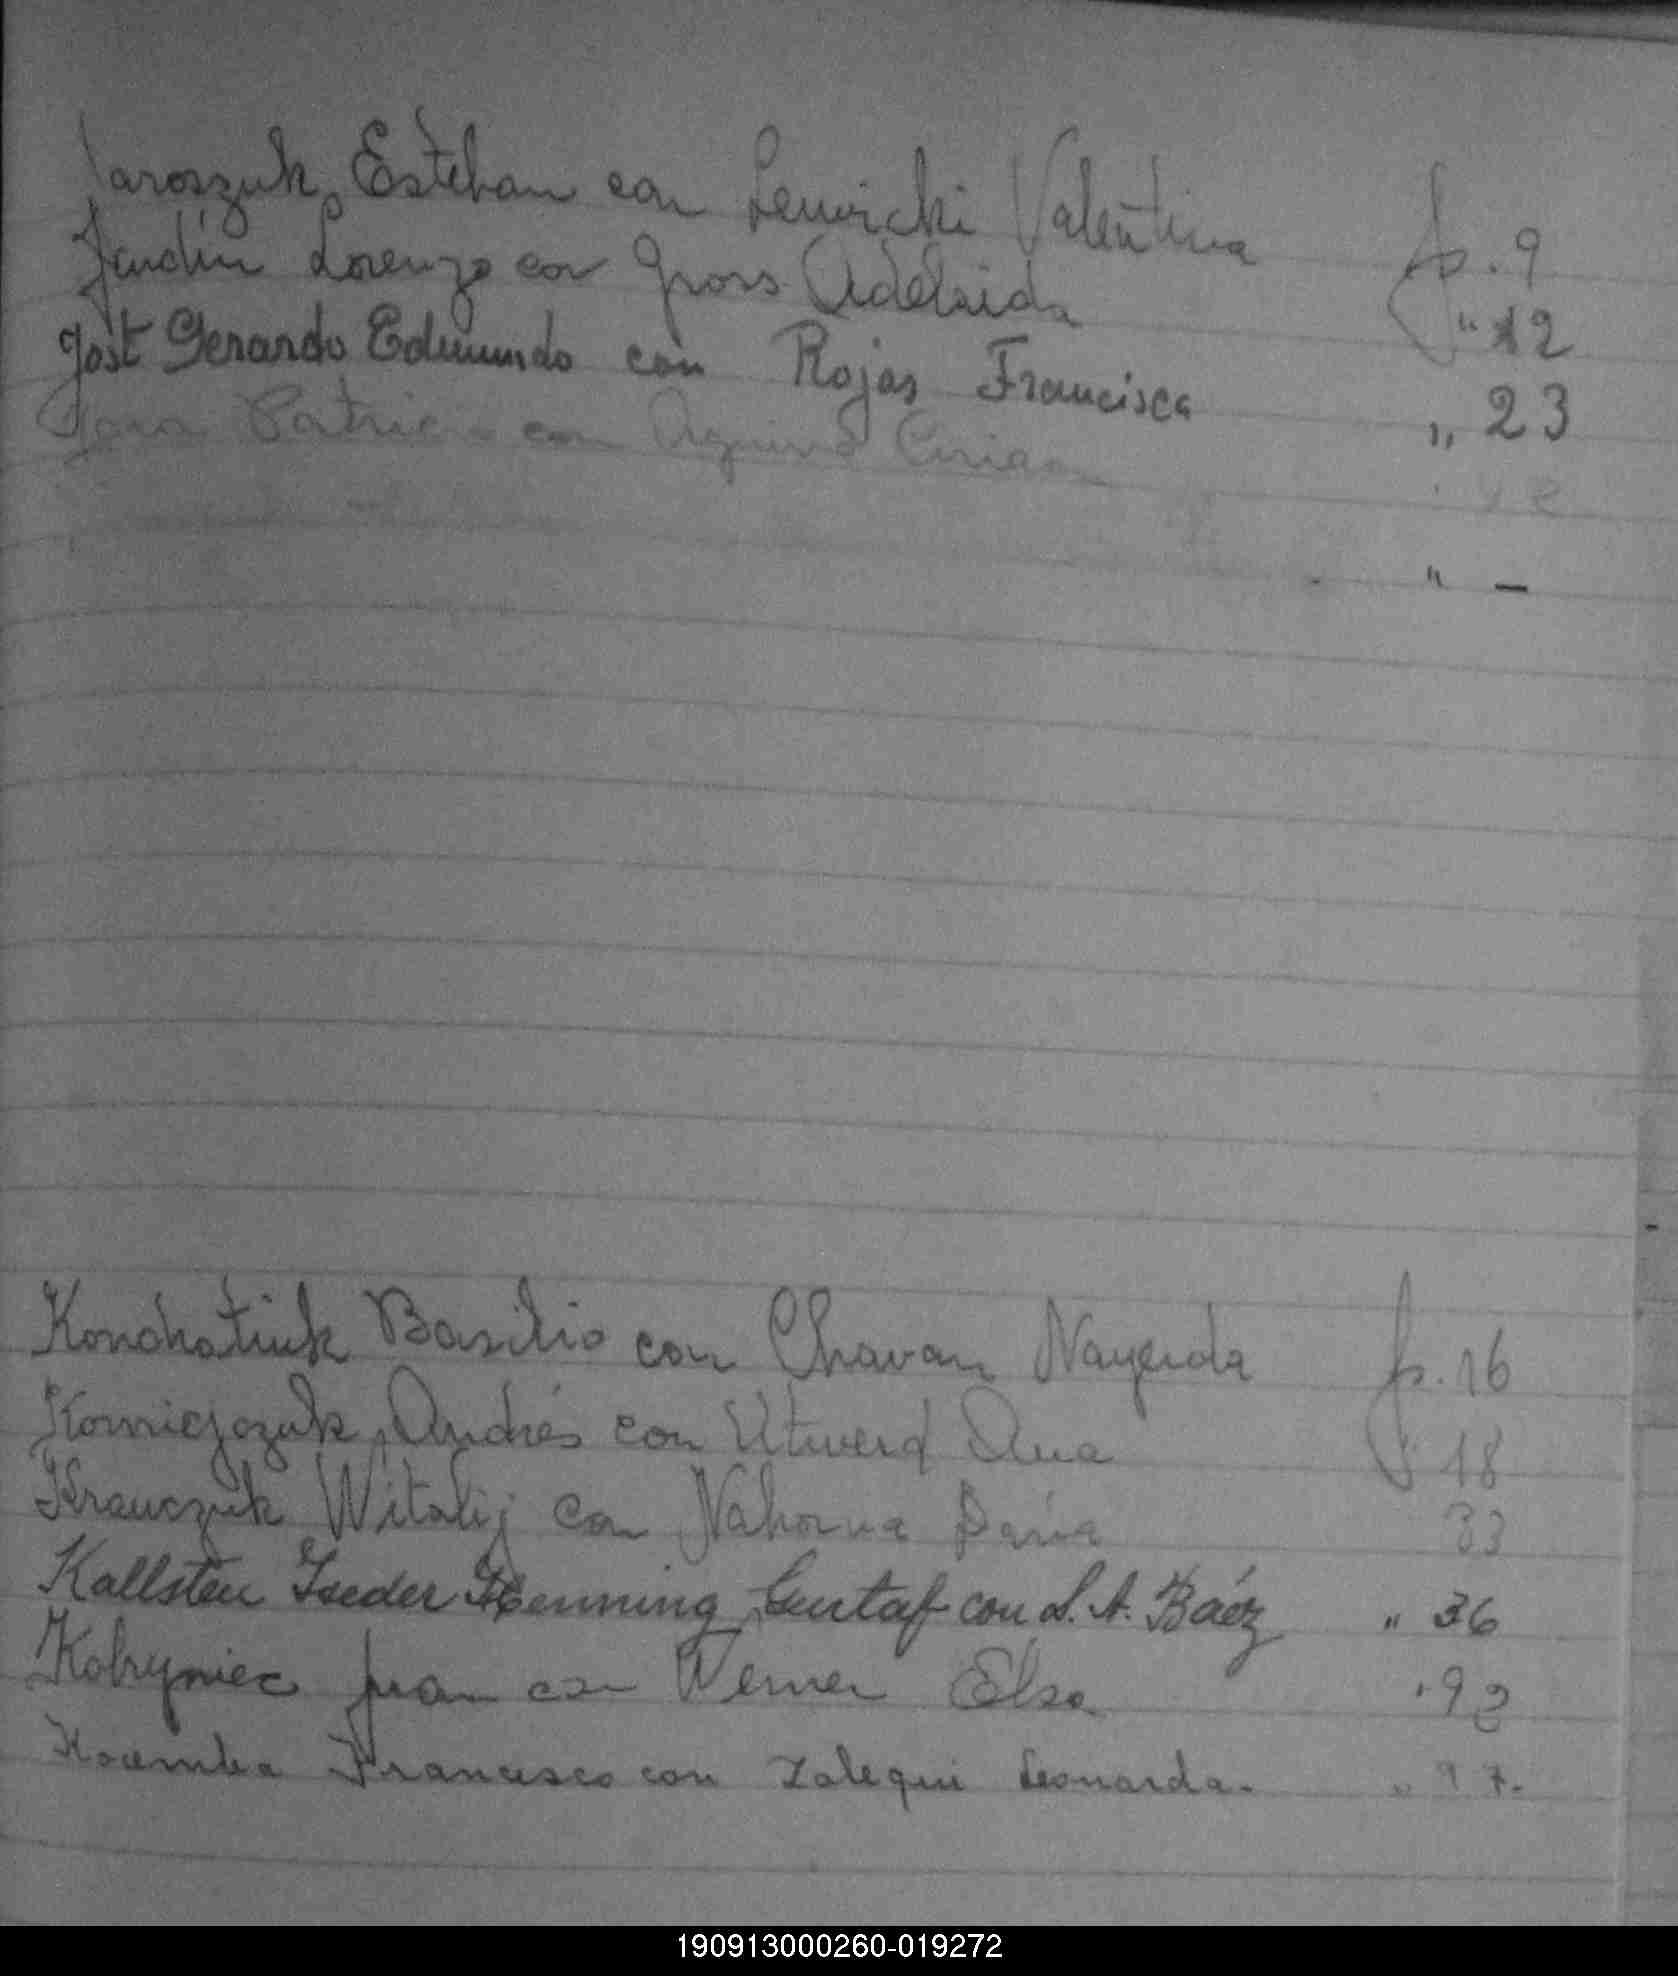 Jaroszuk Esteban con Lewicki Valentina fs. 9
Jardín Lorenzo con Gross Adelaida " 12
Jost Gerardo Edmundo con Rojas Francisca " 23
Patricio con
" –
Kondratiuk Basilio con Chavan fs. 16
Korniejczuk Andrés con Ana " 18
Krawczuk Witalij con Nahorna Daria 33
Kallsten Henning Gustaf con L. A. Báez " 36
Kobryniec Juan con Werner Elsa " 92
Francisco con Leonarda. " 97.
190913000260-019272